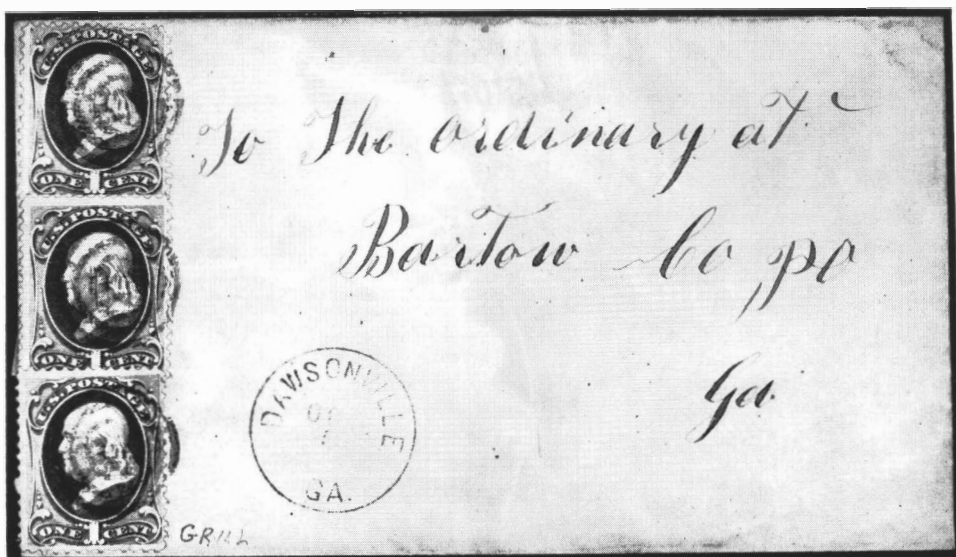 U.S. POSTAGE
ONE 1 CENT
U.S. POSTAGE
ONE 1 CENT
U.S. POSTAGE
ONE 1 CENT
To The Ordinary at
Bartow Co po
Ga.
DAWSONVILLE
GA.
GRILL